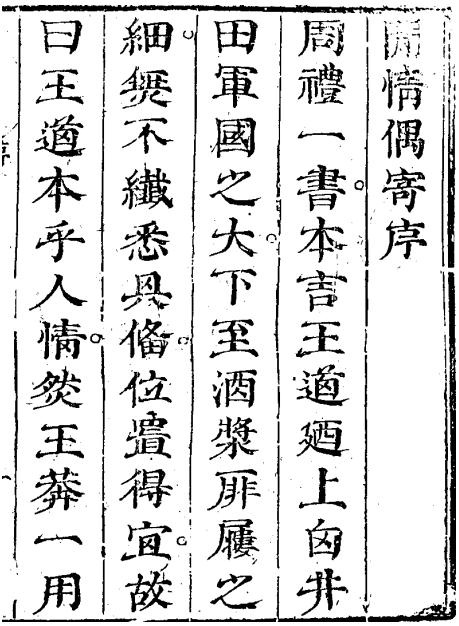 閒情偶寄序
周禮一書。本言王道廼上自井
田軍國之大。下至酒漿屝屨之
細。無不纖悉具備。位置得宜。故
曰王道本乎人情。然王莽一用